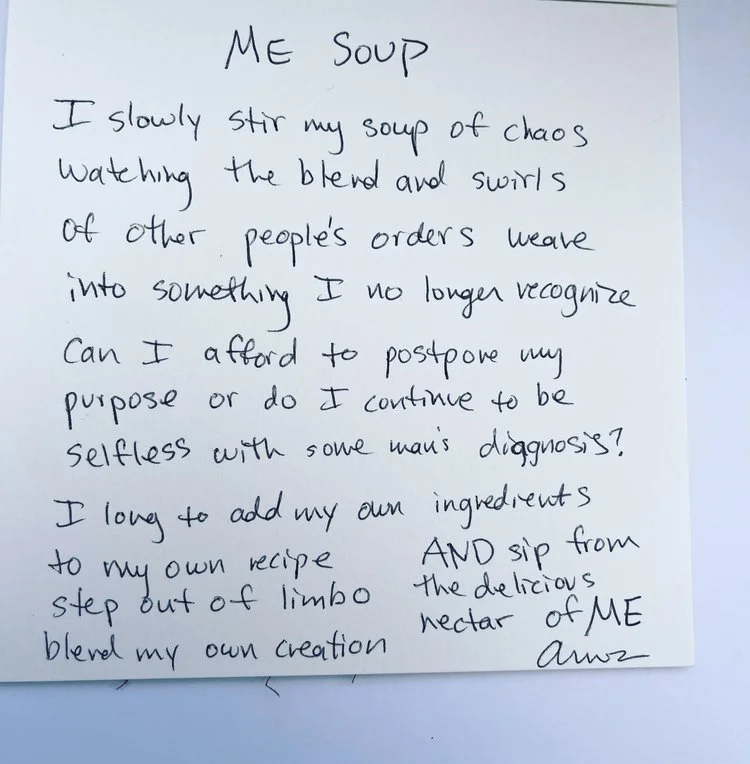 ME SOUP
I slowly stir my soup of chaos
Watching the blend and swirls
of other people's orders weave
into something I no longer recognize
Can I afford to postpone my
purpose or do I continue to be
selfless with some man's diagnosis?
I long to add my own ingredients
to my own recipe
step out of limbo
blend my own creation
AND sip from
the delicious
nectar of ME